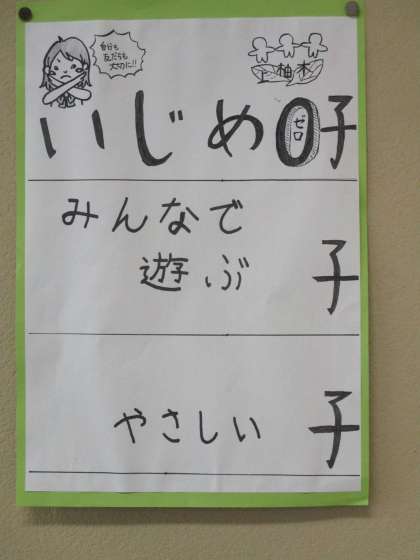 自分も
友だちも
大切に!!
上柚木
いじめ0子
ゼロ
みんなで
遊ぶ 子
やさしい 子